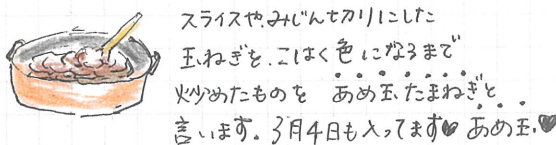 スライスや、みじん切りにした
玉ねぎを、こはく色になるまで
炒めたものを あめ玉たまねぎと
言います。3月4日も入ってます♥ あめ玉♥